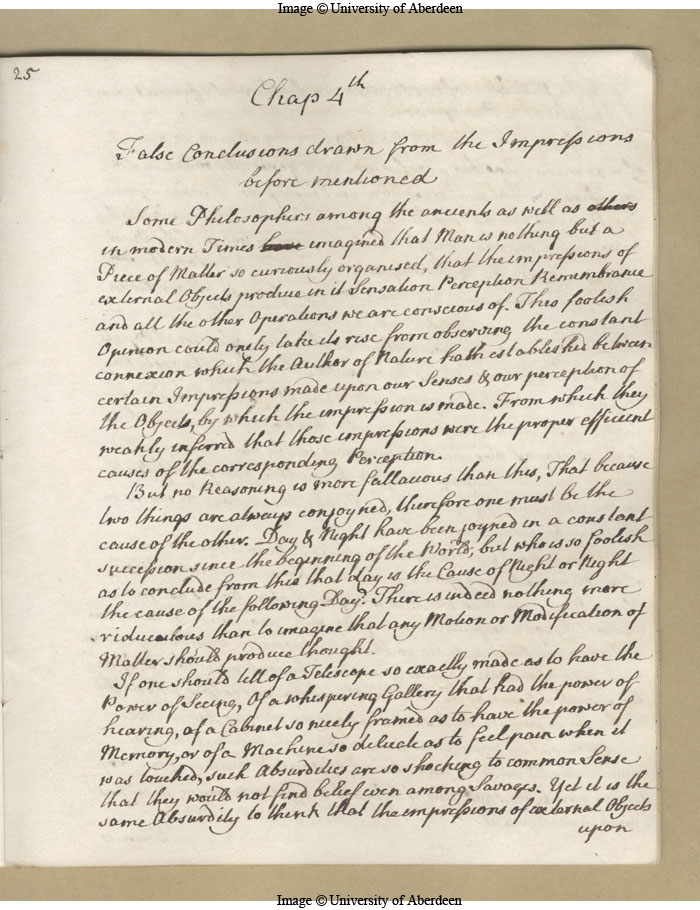 Image © University of Aberdeen
25
Chap 4th
False Conclusions drawn from the Impressions
before mentioned
Some Philosophers among the ancients as well as others
in modern Times have imagined that Man is nothing but a
Piece of Matter so curiously organised, that the impressions of
external Objects produce in it Sensation Perception Remembrance
and all the other Operations we are conscious of. This foolish
Opinion could onely take its rise from observing the constant
connexion which the Author of Nature hath established between
certain Impressions made upon our Senses & our perception of
the Objects, by which the impression is made. From which they
weakly inferred that those impressions were the proper efficient
causes of the corresponding Perception.
But no Reasoning is more fallacious than this, That because
two things are always conjoyned, therefore one must be the
cause of the other. Day & Night have been joyned in a constant
succession since the beginning of the World; but who is so foolish
as to conclude from this that day is the Cause of Night or Night
the cause of the following Day? There is indeed nothing more
ridiculous than to imagine that any Motion or Modification of
Matter should produce thought.
If one should tell of a Telescope so exactly made as to have the
Power of Seeing, Of a whispering Gallery that had the power of
hearing, of a Cabinet so nicely framed as to have the power of
Memory, or of a Machine so delicate as to feel pain when it
was touched, such Absurdities are so shocking to common Sense
that they would not find belief even among Savages. Yet it is the
same Absurdity to think that the impressions of external Objects
upon
Image © University of Aberdeen